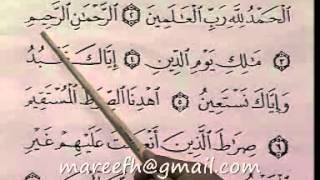 ٱلْحَمْدُ لِلَّهِ رَبِّ ٱلْعَٰلَمِينَ ٢ ٱلرَّحْمَٰنِ ٱلرَّحِيمِ
٣ مَٰلِكِ يَوْمِ ٱلدِّينِ ٤ إِيَّاكَ نَعْبُدُ
وَإِيَّاكَ نَسْتَعِينُ ٥ ٱهْدِنَا ٱلصِّرَٰطَ ٱلْمُسْتَقِيمَ
٦ صِرَٰطَ ٱلَّذِينَ أَنْعَمْتَ عَلَيْهِمْ غَيْرِ
mareefh@gmail.com